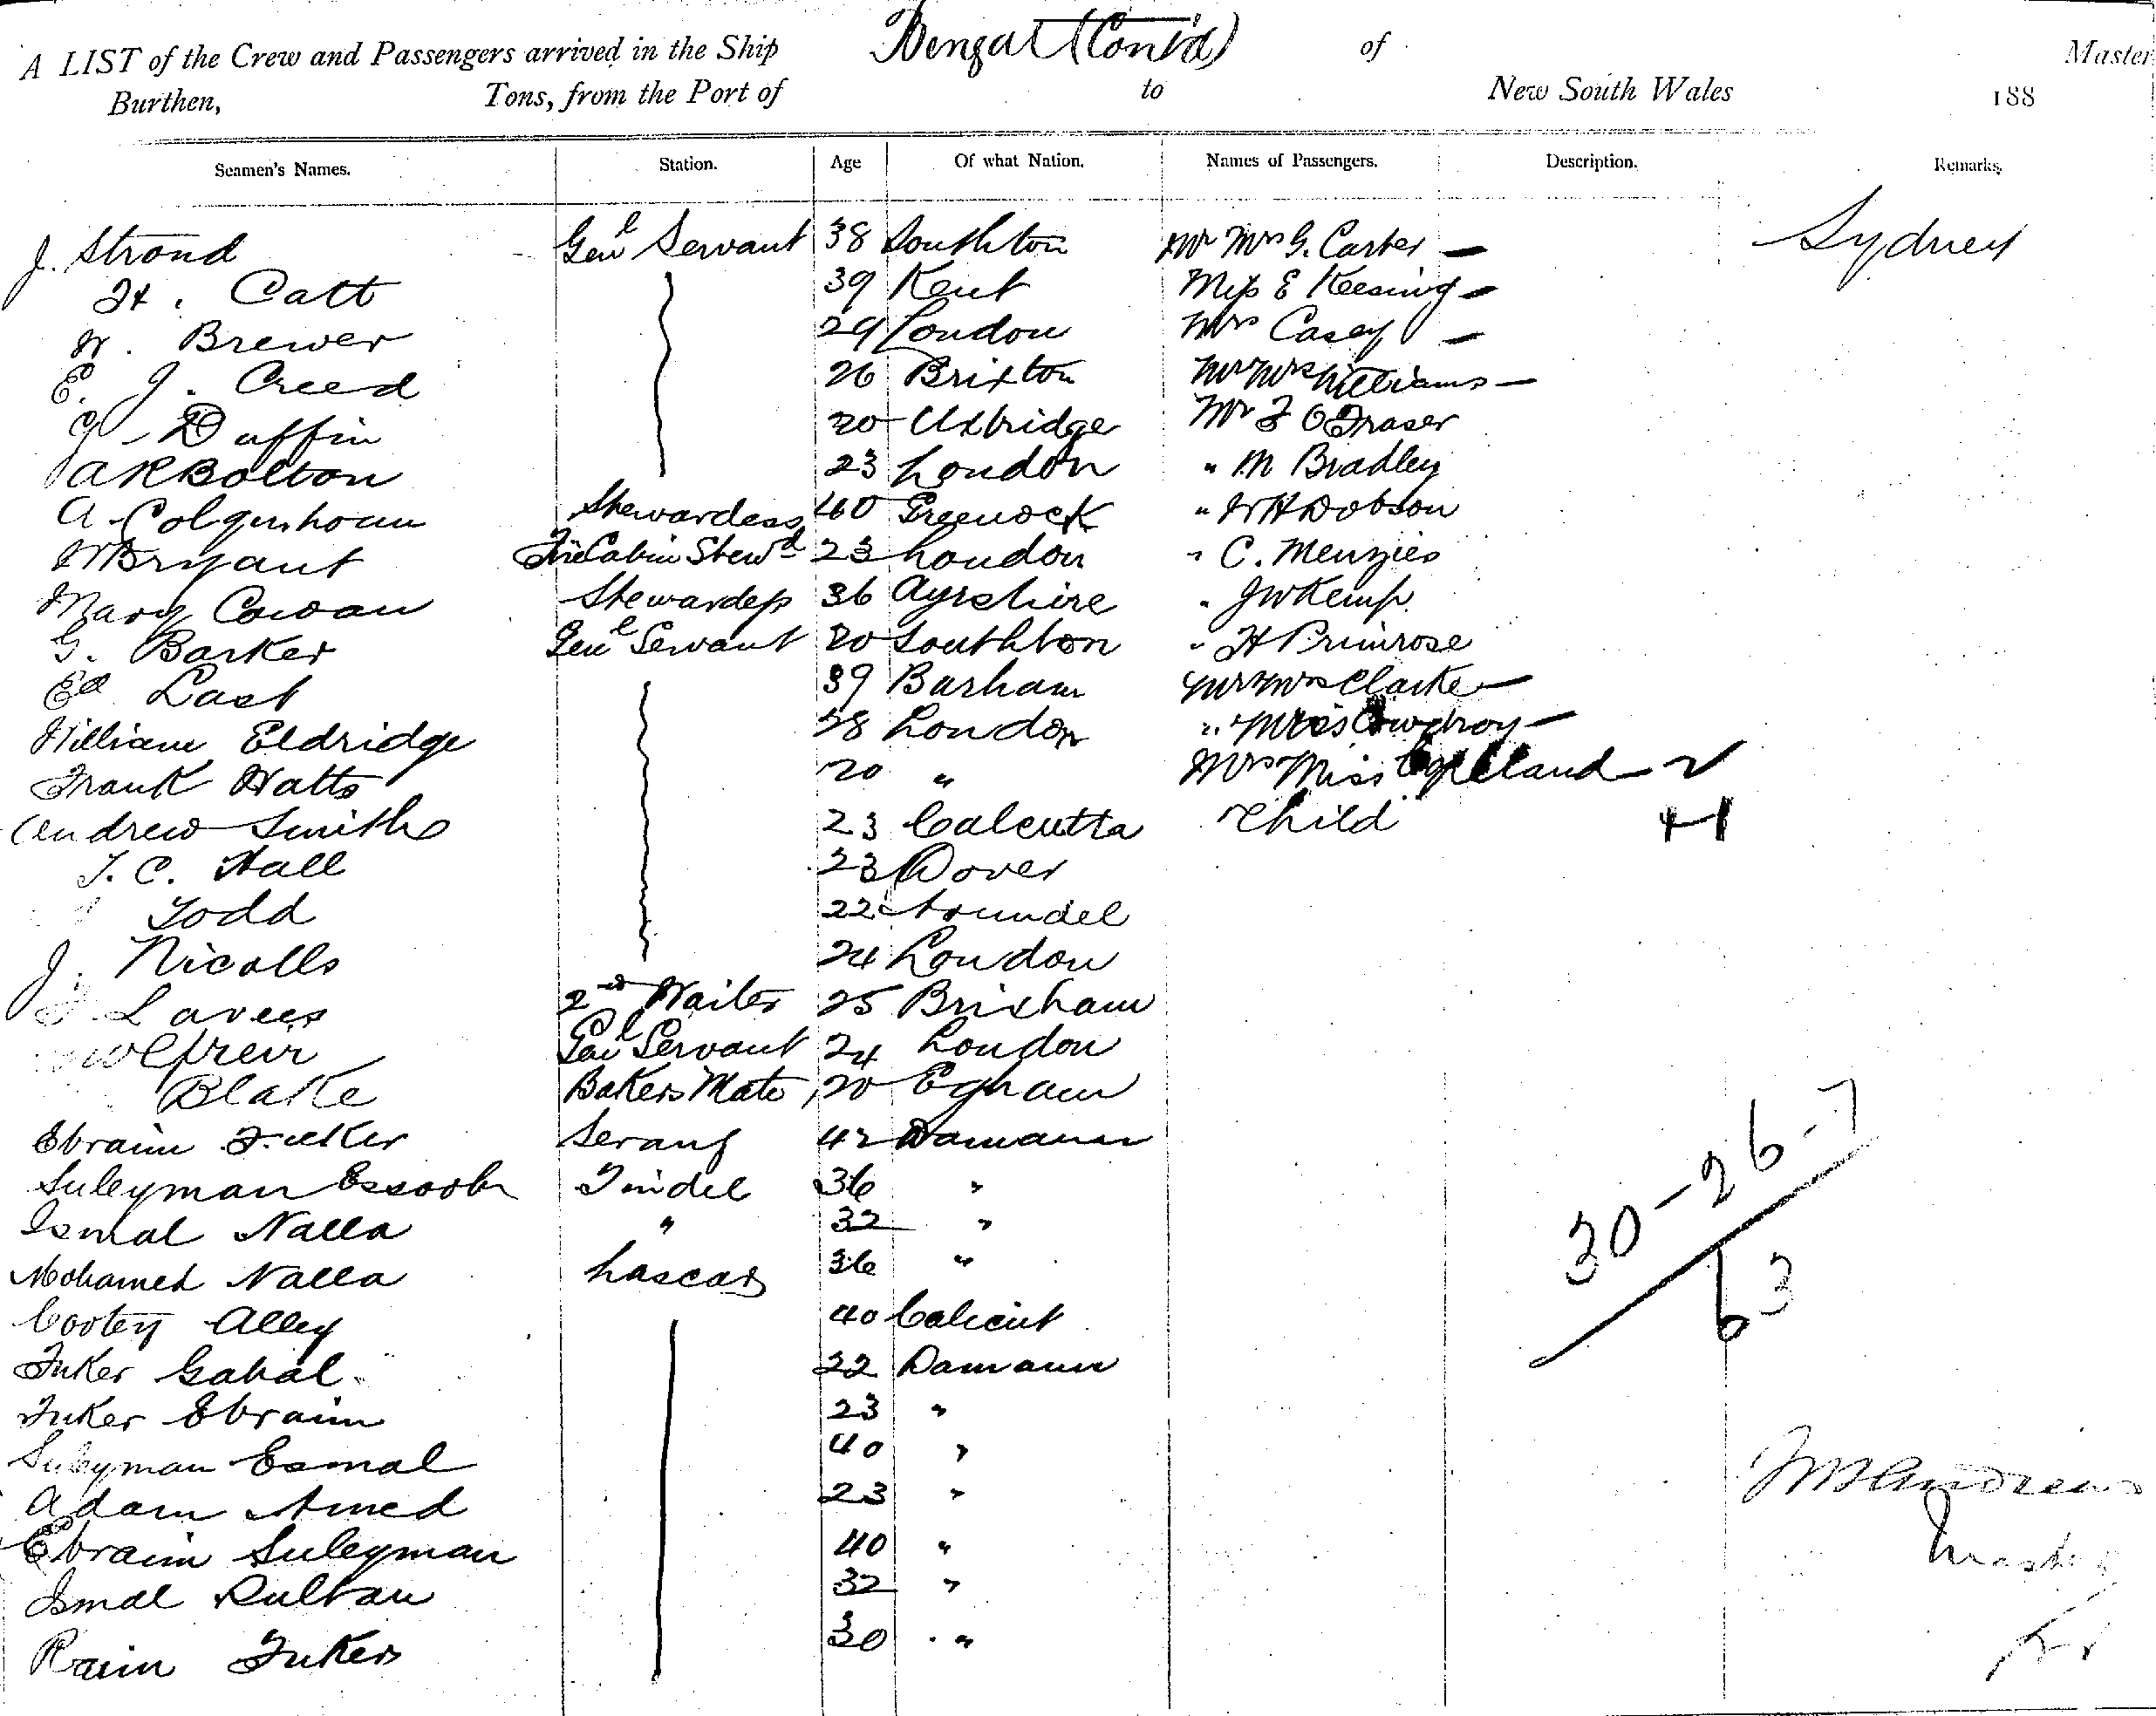 A LIST of the Crew and Passengers arrived in the Ship Bengal (Cont'd) of Master
Burthen, Tons, from the Port of to New South Wales 188
Seamen's Names. Station. Age Of what Nation. Names of Passengers. Description. Remarks.
J. Strond Genl Servant 38 Southton Mr Mrs G. Carter — Sydney
H. Catt 39 Kent Miss E Keesing —
W. Brewer 29 London Mrs Casey —
E. J. Creed 26 Brixton Mr Mrs Williams —
G. Duffin 20 Uxbridge Mr F O Fraser
A R Bolton 23 London " M Bradley
A. Colquhoun Stewardess 40 Greenock " W H Dobson
W Bryant Fore Cabin Stewd 23 London " C. Menzies
Mary Cowan Stewardess 36 Ayrshire " J W Kemp
G. Barker Genl Servant 20 Southton " H Primrose
Ed Last 39 Barham Mr Mrs Clarke —
William Eldridge 28 London " Miss Cowdroy —
Frank Watts 20 " Mrs Miss Copeland — ✓
Andrew Smith 23 Calcutta Child
T. C. Hall 23 Dover
Todd 22 Arundel
J. Nicolls 24 London
Lavers 2nd Waiter 25 Brixham
Genl Servant 24 London
Blake Bakers Mate 20 Egham
Ebraim Fucker Serang 42 Damaun
Suleyman Essoob Tindel 36 "
Ismal Nalla " 32 "
Mohamed Nalla Lascar 36 "
Cootey Alley 40 Calicut
Fuker Gabal 22 Damaun
Fuker Ebraim 23 "
Suleyman Esmal 40 "
Adam Amed 23 "
Ebraim Suleyman 40 "
Ismal Sultan 32 "
Raim Fuker 30 "
30-26-7
63
Andrews
Master